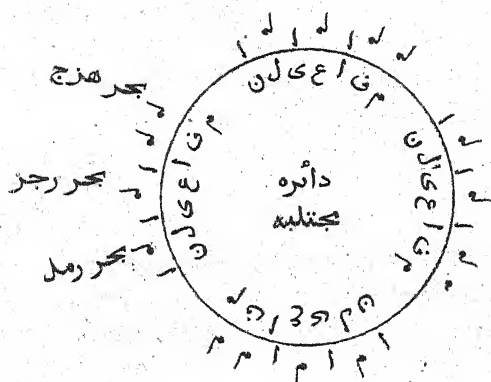 بحر هزج
بحر رجز
بحر رمل
دائره
مجتلبه
م ف ا ع ی ل ن
م ف ا ع ی ل ن
م ف ا ع ی ل ن
م ف ا ع ی ل ن